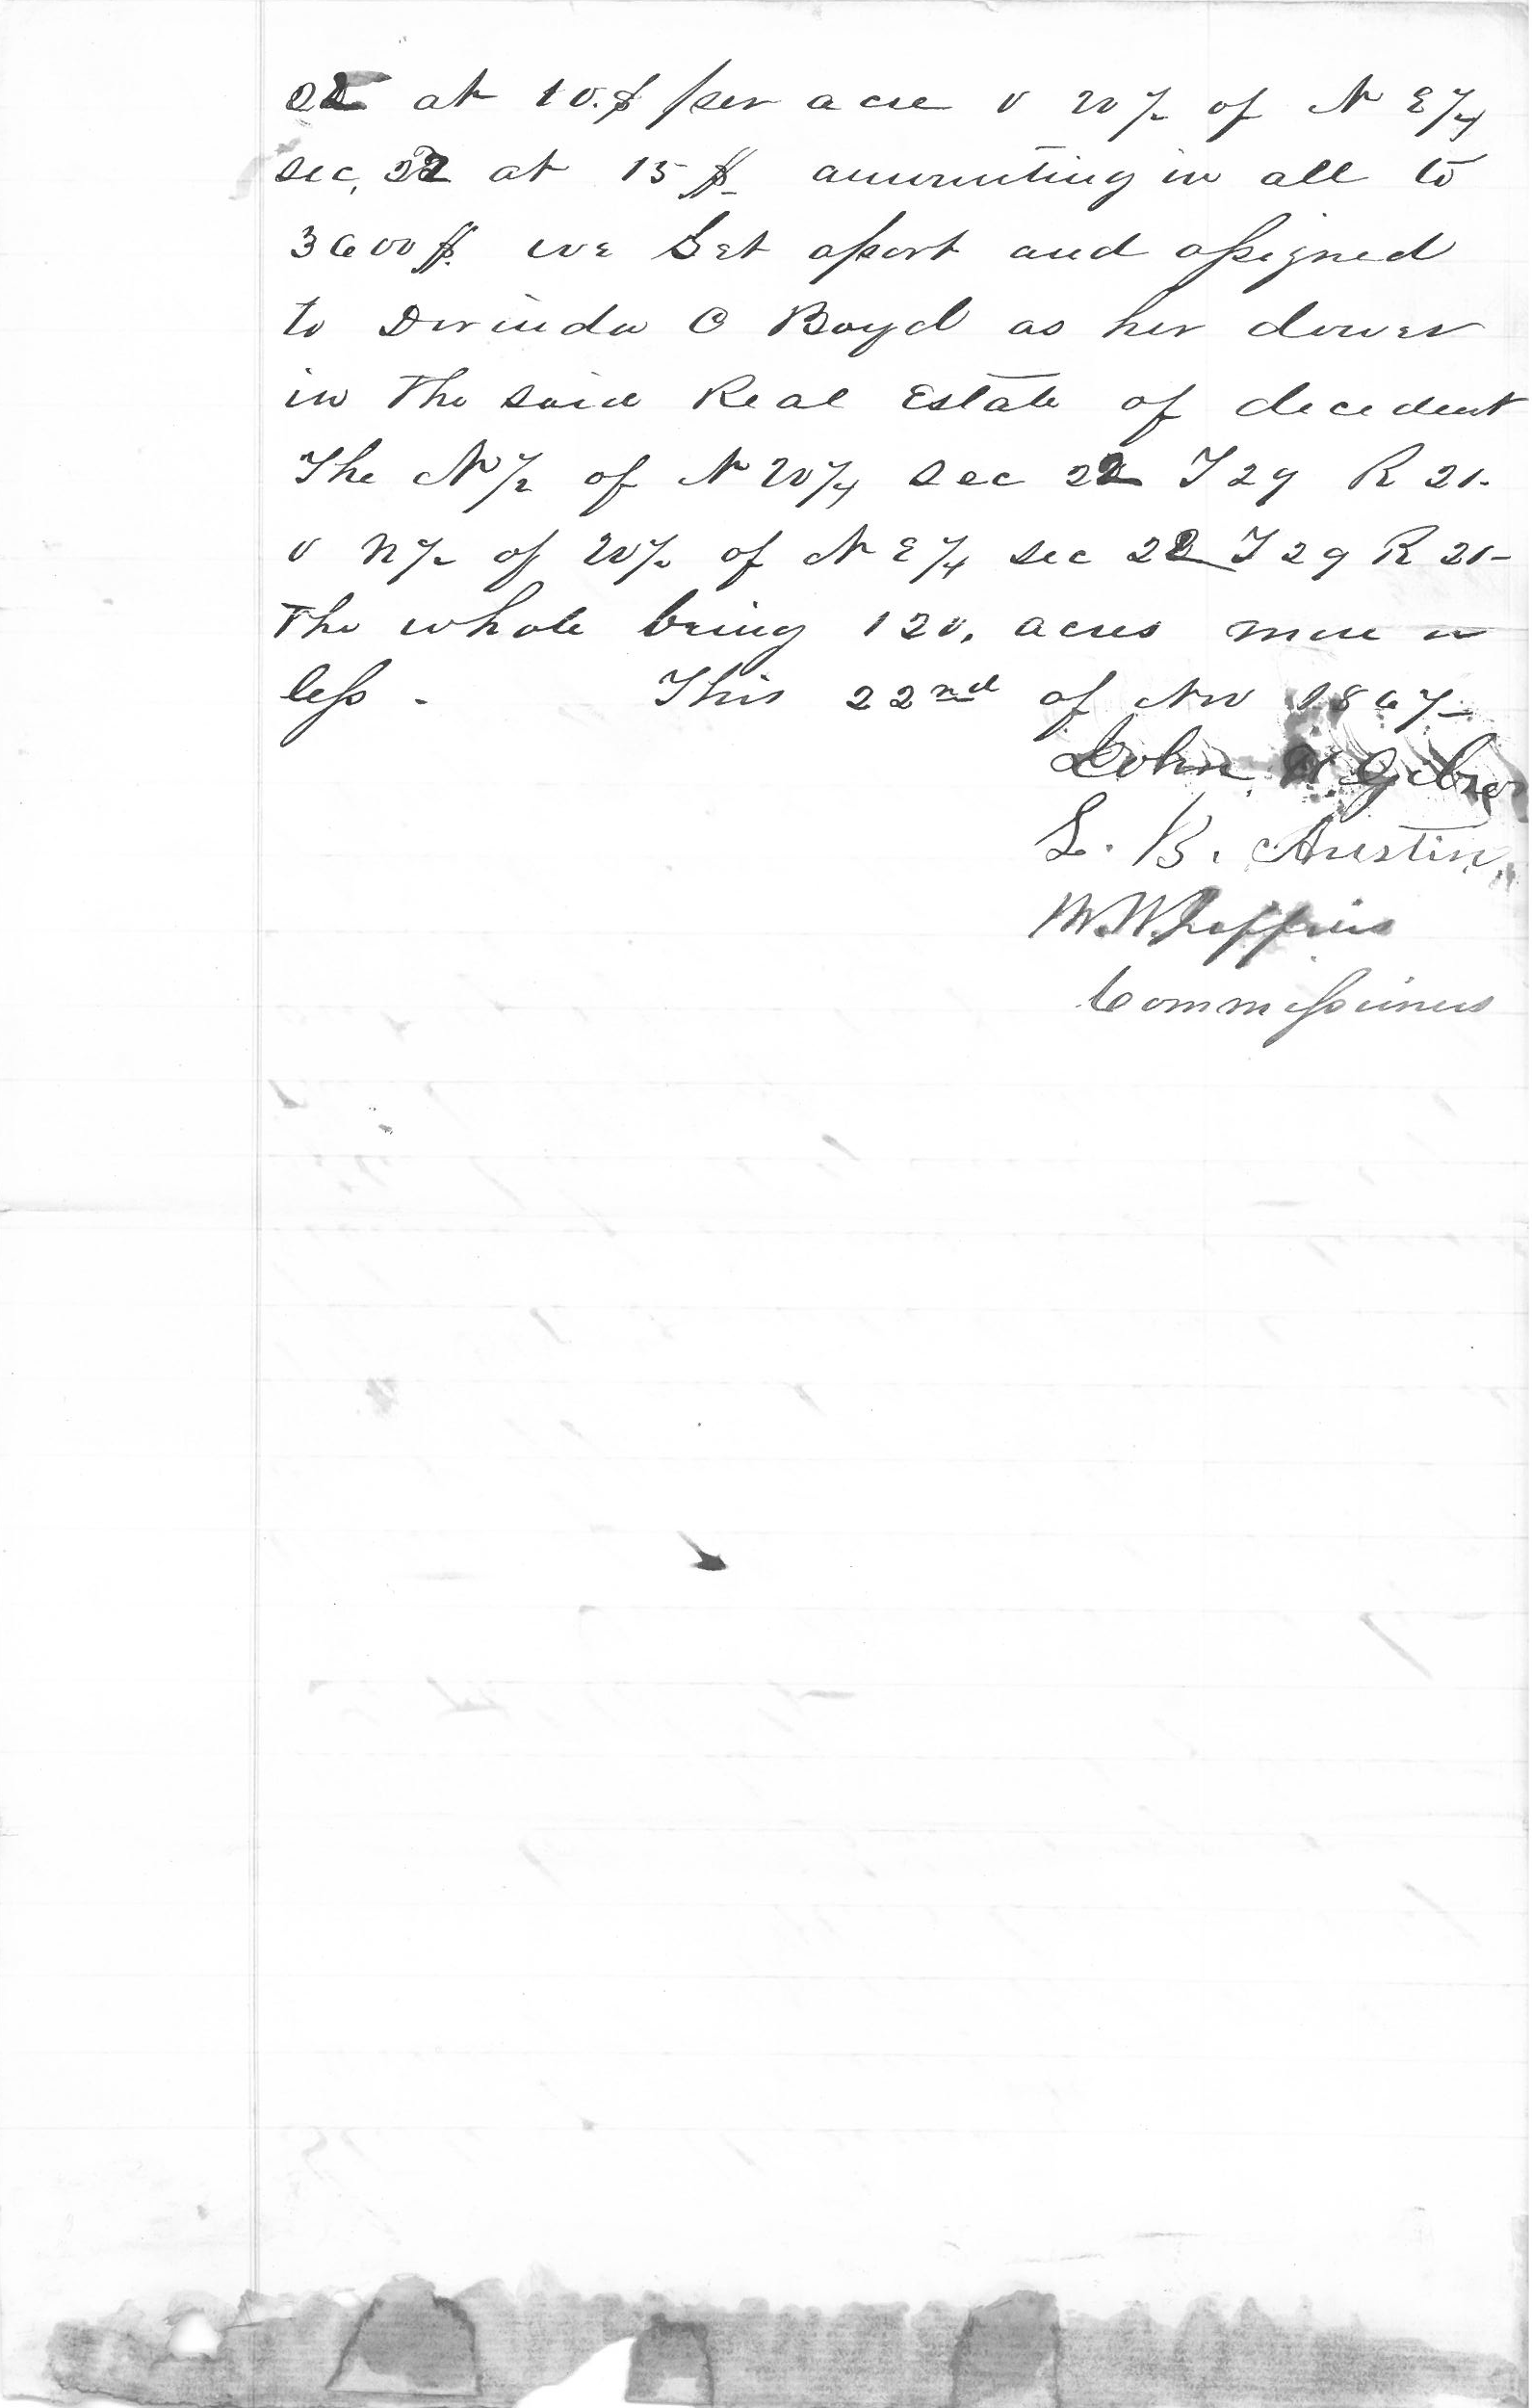 22 at 10.$ per acre & W ½ of N E ¼
sec, 22 at 15 $ amounting in all to
3600 $. we Set apart and assigned
to C Boyd as her dower
in The said Real Estate of decedent
The N ½ of N W ¼ sec 22 T 29 R 21-
& N ½ of W ½ of N E ¼ sec 22 T 29 R 21-
The whole being 120. acres more or
less - This 22nd of Nov 1867-
John
L. B. Austin
Commissioners